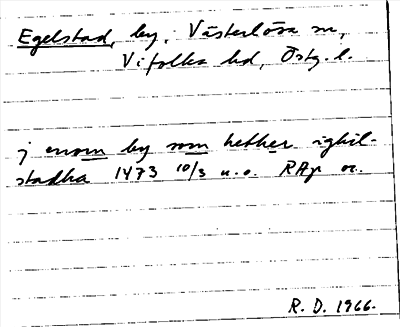 Egelstad, by, Västerlösa sn,
Vifolka hd, Östg. l.
j enom by som hether ighil-
stadha 1473 10/3 u.o. RAp or.
R. D. 1966.